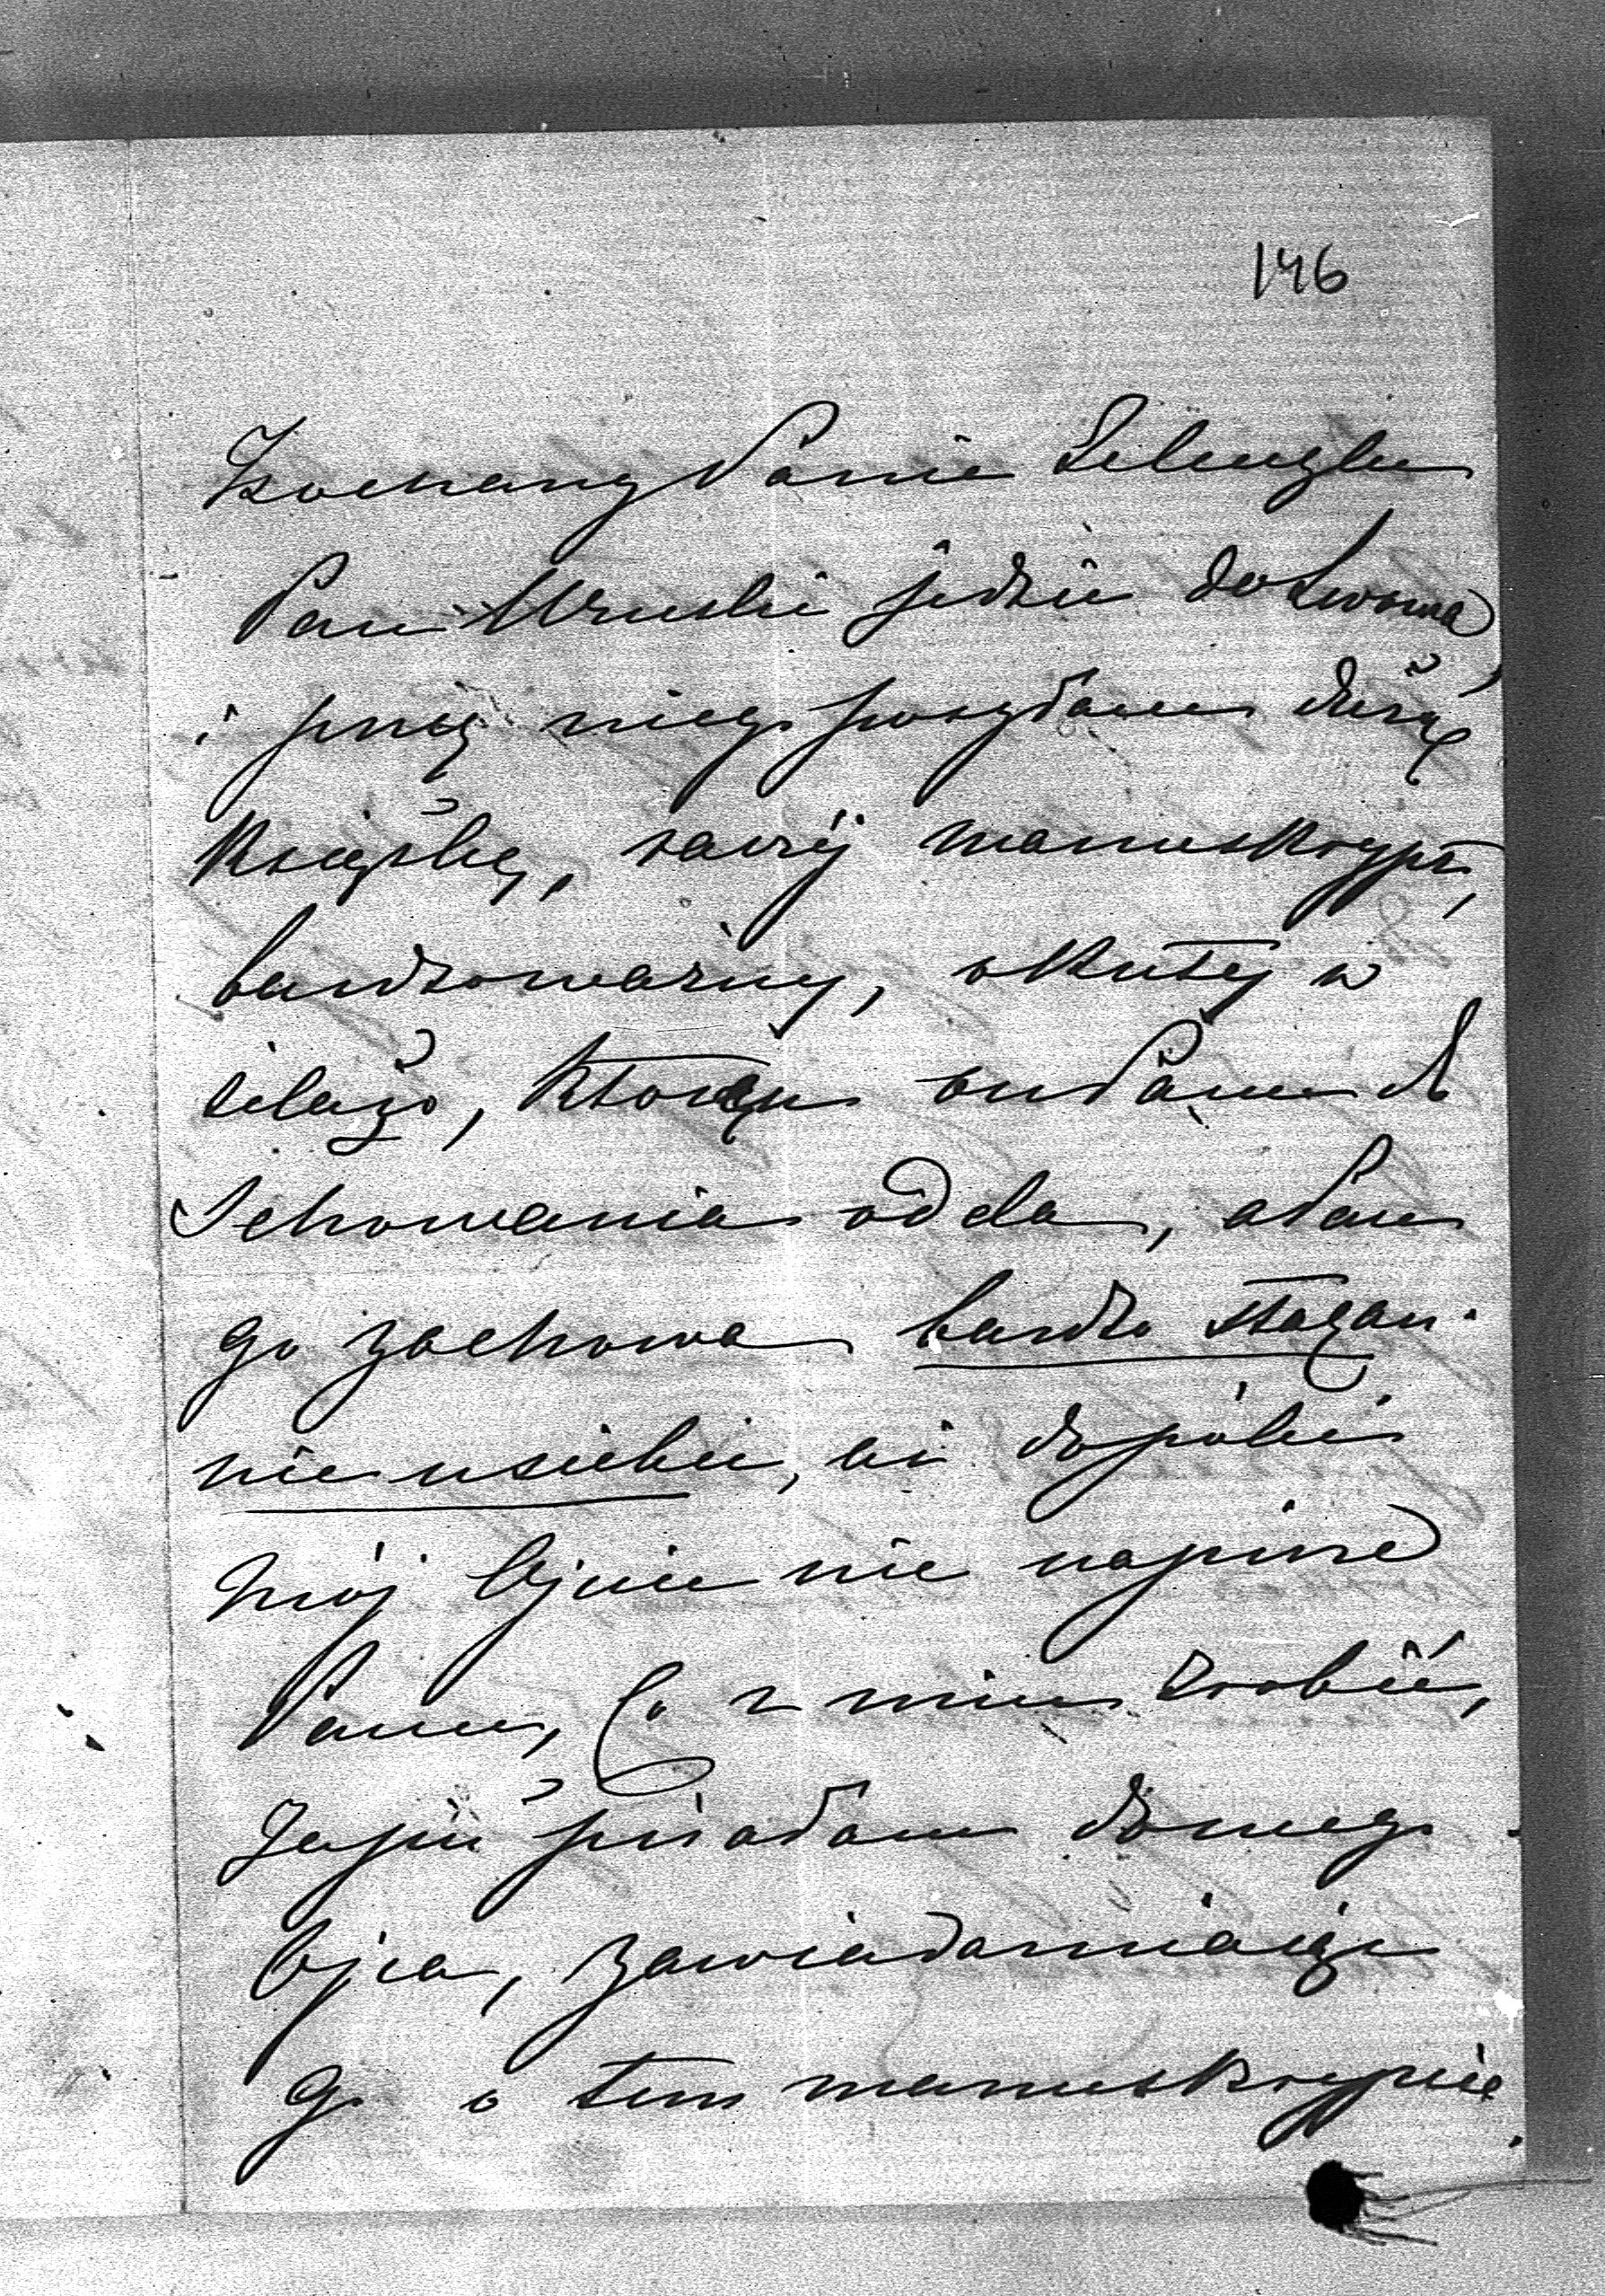 146
Kochany Panie
Pan Uruski jedzie do Lwowa,
i przez niego posyłam dużą
Książkę, raczej manuskrypt,
bardzo ważny, okuty w
żelazo, który on Panu do
Schowania odda, a Pan
go zachowa bardzo staran-
nie u siebie, aż dopóki
mój Ojciec nie napisze
Panu, Co z nim zrobić,
Ja piszę do mego
Ojca, zawiadamiając
go o tem manuskrypcie.